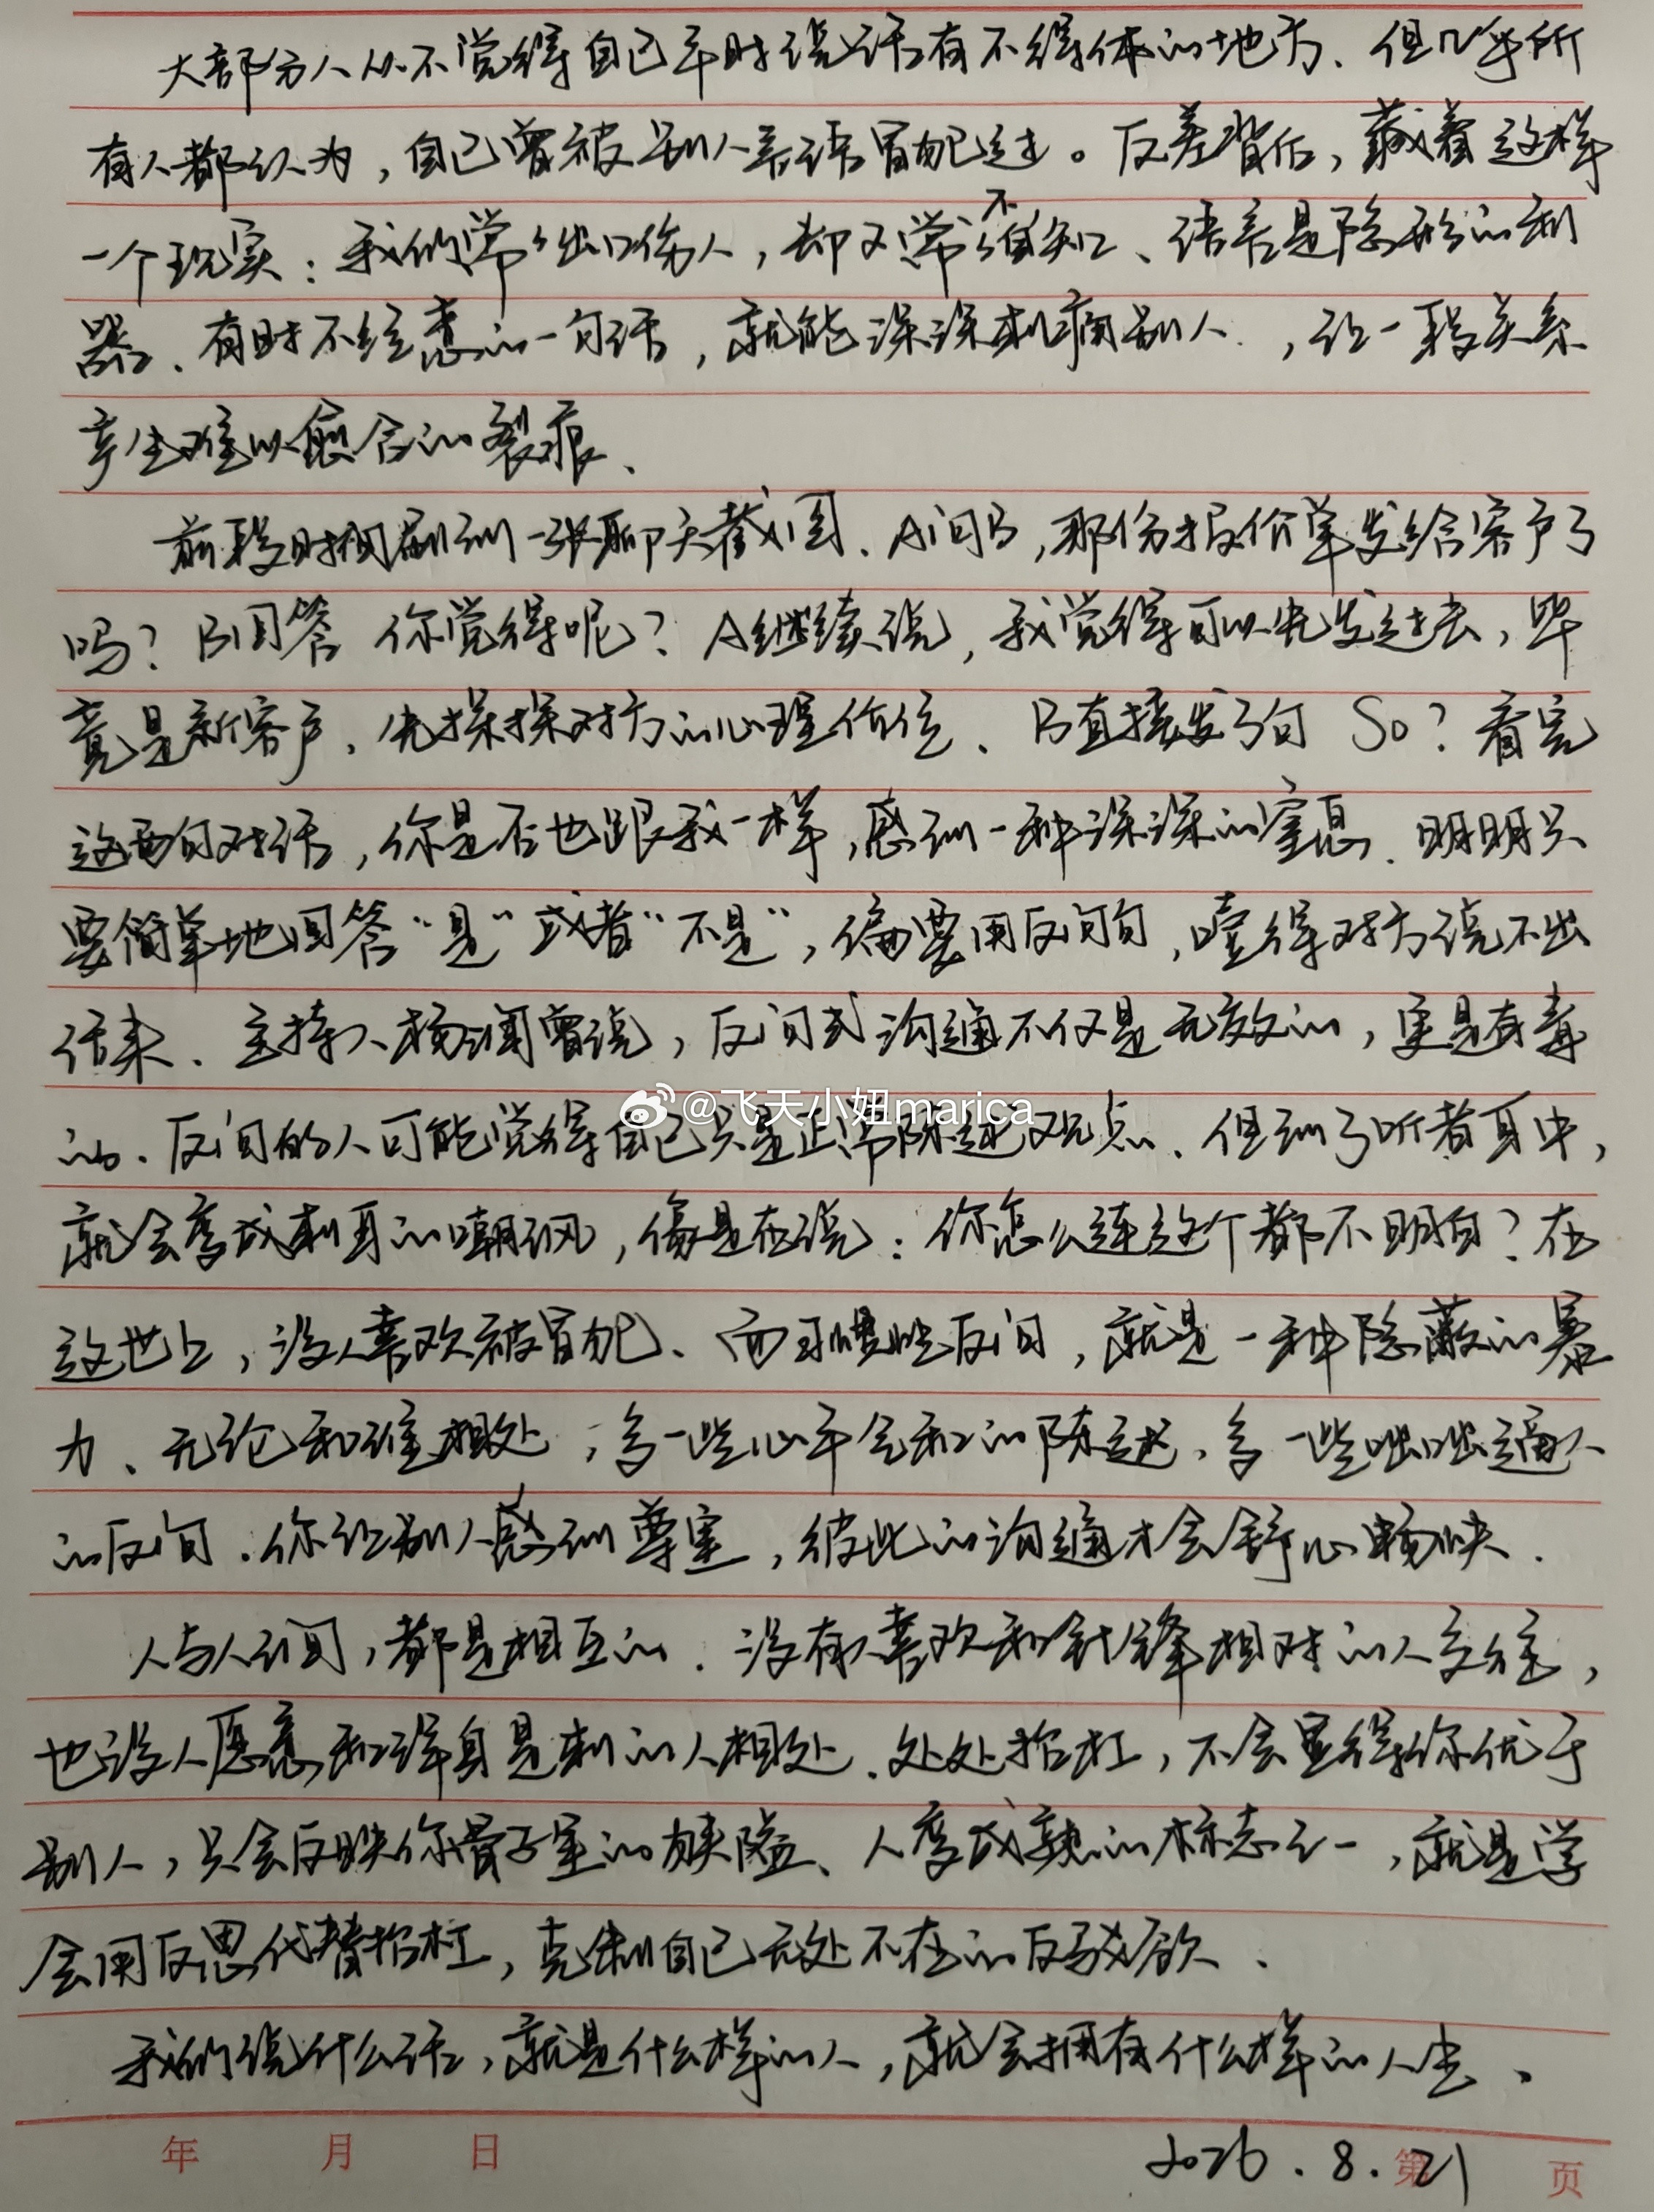 大部分人从不觉得自己平时说话有不得体的地方、但几乎所
有人都认为，自己曾被别人亲话冒犯过。反差背后，藏着这样
一个现实：我们常常出口伤人，却又常常不自知、语言是隐形的利
器、有时不经意的一句话，就能深深刺痛别人.，让一段关系
产生难以愈合的裂痕、
前段时间刷到一张聊天截图、A问B，那份报价单发给客户了
吗？B回答 你觉得呢？A继续说，我觉得可以先发过去，毕
竟是新客户，先探探对方的心理价位、B直接发了句 So？看完
这两句对话，你是否也跟我一样，感到一种深深的窒息.明明只
要简单地回答“是”或者“不是”，偏要用反问句，噎得对方说不出
话来、主持人杨澜曾说，反问式沟通不仅是无效的，更是有毒
的、反问的人可能觉得自己只是正常陈述观点、但到了听者耳中，
就会变成刺耳的嘲讽，像是在说：你怎么连这个都不明白？在
这世上，没人喜欢被冒犯、而习惯性反问，就是一种隐蔽的暴
力、无论和谁相处，多一些心平气和的陈述、多一些咄咄逼人
的反问.你让别人感到尊重，彼此的沟通才会舒心畅快.
人与人之间，都是相互的.没有人喜欢和针锋相对的人交往，
也没人愿意和浑身是刺的人相处.处处抬杠，不会显得你优于
别人，只会反映你骨子里的狭隘、人变成熟的标志之一，就是学
会用反思代替抬杠，克制自己无处不在的反驳欲、
我们说什么话，就是什么样的人，就会拥有什么样的人生、
年 月 日 2026.8.21 第 页
@飞天小妞marica